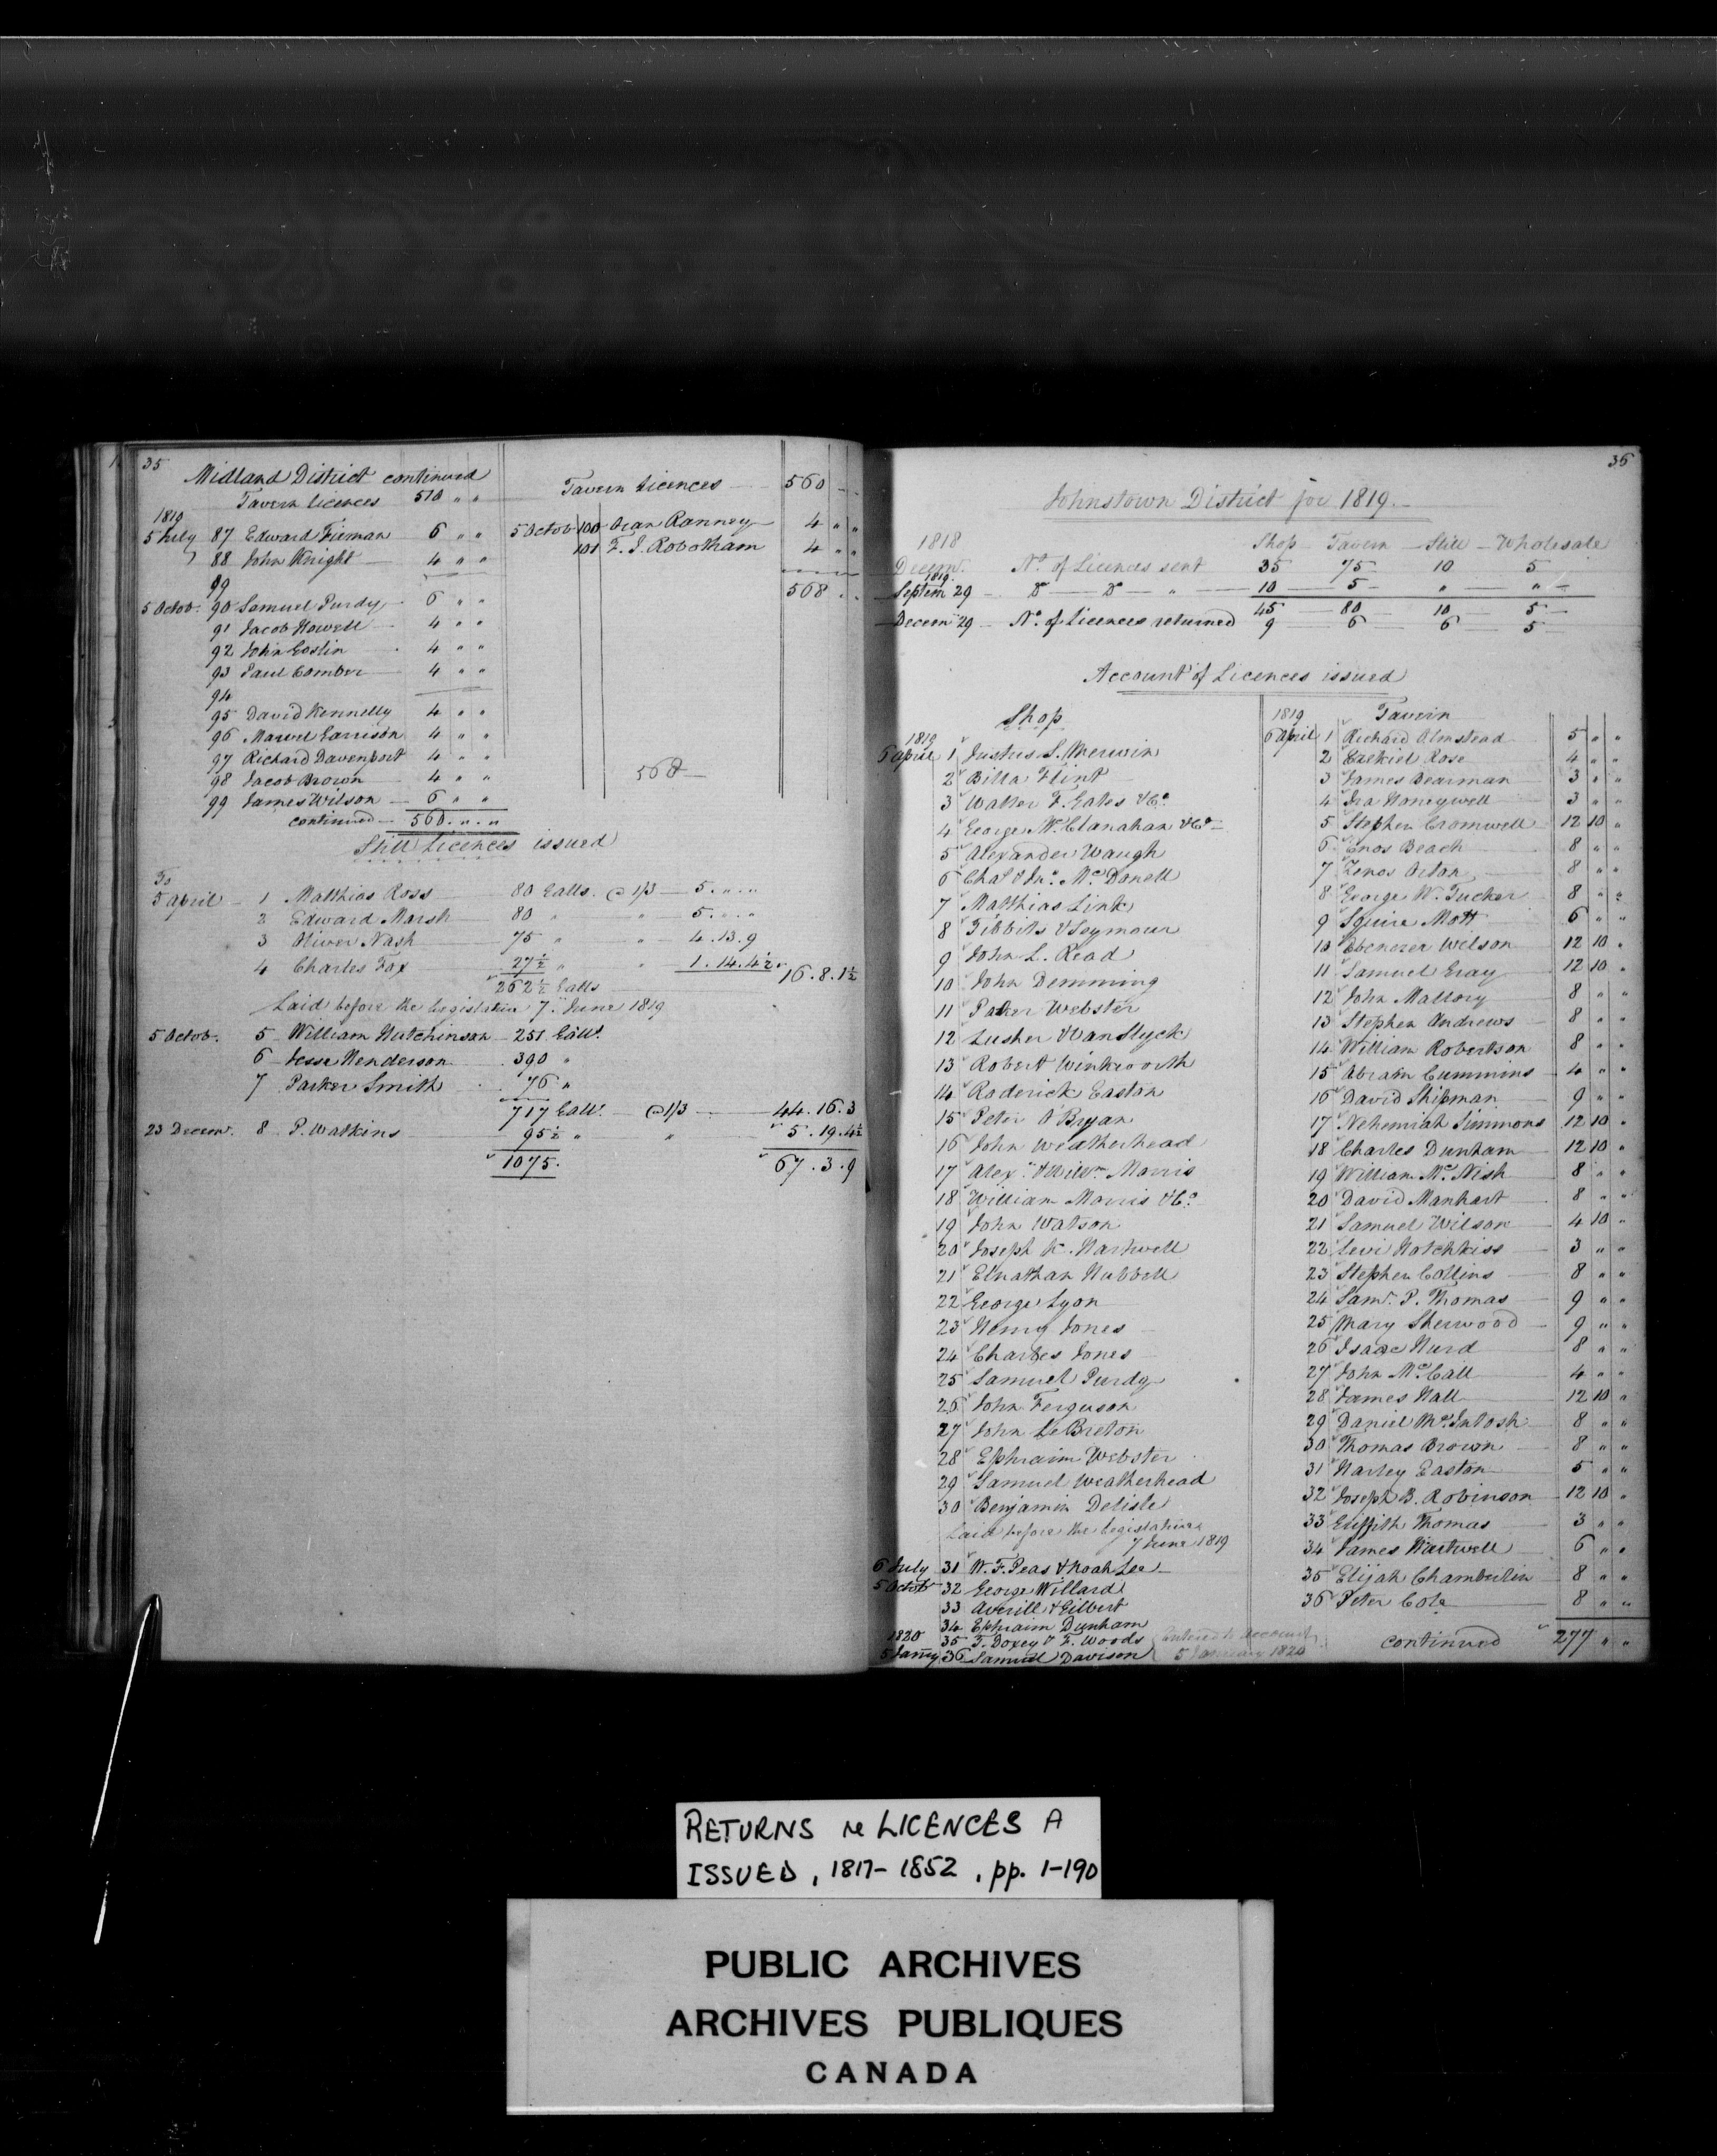 35
Midland District continued
Tavern Licences 510 " "
1819
5 July 87 Edward Tieman 6 " "
88 John Knight 4 " "
89
5 Octob. 90 Samuel Purdy 6 " "
91 Jacob Howell 4 " "
92 John Goslin 4 " "
93 Paul Comber 4 " "
94
95 David Kennelly 4 " "
96 Garrison 4 " "
97 Richard Davenport 4 " "
98 Jacob Brown 4 " "
99 James Wilson 6 " "
continued 560 " "
Tavern Licences 560
5 Octob 100 Ranney 4 " "
101 F. J. Robotham 4 " "
568
568
Still Licences issued
To
5 April 1 Matthias Ross 80 Galls. @ 1/3 5 . " . "
2 Edward Marsh 80 " " 5 . " . "
3 Oliver Nash 75 " " 4 . 13 . 9
4 Charles Fox 27½ " " 1 . 14 . 4½
262½ Galls 16 . 8 . 1½
Laid before the Legislature 7th June 1819
5 Octob. 5 William Hutchinson 251 Galls.
6 Jesse Henderson 390 "
7 Parker Smith 76 "
717 Galls. @ 1/3 44 . 16 . 3
23 Decem. 8 P. Watkins 95½ " " 5 . 19 . 4½
1075. 67 . 3 . 9
36
Johnstown District for 1819.
1818 Shop Tavern Still Wholesale
Decem. No. of Licences sent 35 75 10 5
1819.
Septem 29 Do Do " 10 5 " "
45 80 10 5
Decem 29 No. of Licences returned 9 6 6 5
Account of Licences issued
Shop
1819
6 April 1 Justus S. Merwin
2 Billa Flint
3 Walter F. Gates & Co.
4 George McClanahan & Co
5 Alexander Waugh
6 Chas. & Jno. McDonell
7 Matthias Link
8 Tibbits & Seymour
9 John L. Read
10 John Demming
11 Webster
12 Lusher & Vanslyck
13 Robert Winkworth
14 Roderick Easton
15 Peter O'Bryan
16 John Weatherhead
17 Alex. & Willm. Morris
18 William Morris & Co.
19 John Watson
20 Joseph K. Hartwell
21 Elnathan Hubbell
22 George Lyon
23 Henry Jones
24 Charles Jones
25 Samuel Purdy
26 John Ferguson
27 John LeBreton
28 Ephraim Webster
29 Samuel Weatherhead
30 Benjamin Delisle
Laid before the Legislature
7 June 1819
6 July 31 W. F. Peas & Noah Lee
5 Octob 32 George Willard
33 Averill & Gilbert
34 Ephraim Dunham
1820 35 T. Doxey & F. Woods
5 Janny 36 Samuel Davison
Entered to account
5 January 1820
1819 Tavern
6 April 1 Richard Olmstead 5 " "
2 Ezekiel Rose 4 " "
3 James Bearman 3 " "
4 Ira Honeywell 3 " "
5 Stephen Cromwell 12 10 "
6 Enos Beach 8 " "
7 Zenos Orton 8 " "
8 George W. Tucker 8 " "
9 Squire Mott 6 " "
10 Ebenezer Wilson 12 10 "
11 Samuel Gray 12 10 "
12 John Mallory 8 " "
13 Stephen Andrews 8 " "
14 William Robertson 8 " "
15 Abram Cummins 4 " "
16 David Shipman 9 " "
17 Nehemiah Simmons 12 10 "
18 Charles Dunham 12 10 "
19 William McNish 8 " "
20 David Manhart 8 " "
21 Samuel Wilson 4 10 "
22 Levi Hotchkiss 3 " "
23 Stephen Collins 8 " "
24 Saml. P. Thomas 9 " "
25 Mary Sherwood 9 " "
26 Isaac Hurd 8 " "
27 John McCall 4 " "
28 James Hall 12 10 "
29 Daniel McIntosh 8 " "
30 Thomas Brown 8 " "
31 Harley Easton 5 " "
32 Joseph B. Robinson 12 10 "
33 Griffith Thomas 3 " "
34 James Hartwell 6 " "
35 Elijah Chamberlin 8 " "
36 Peter Cole 8 " "
continued 277 " "
RETURNS re LICENCES A
ISSUED, 1817-1852, pp. 1-190
PUBLIC ARCHIVES
ARCHIVES PUBLIQUES
CANADA